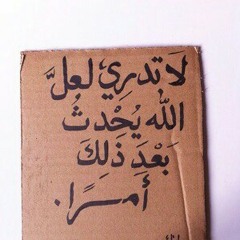 لَا تَدْرِي لَعلَّ
اللهَ يُحْدِثُ
بَعْدَ ذَلِكَ
أَمــرًا.